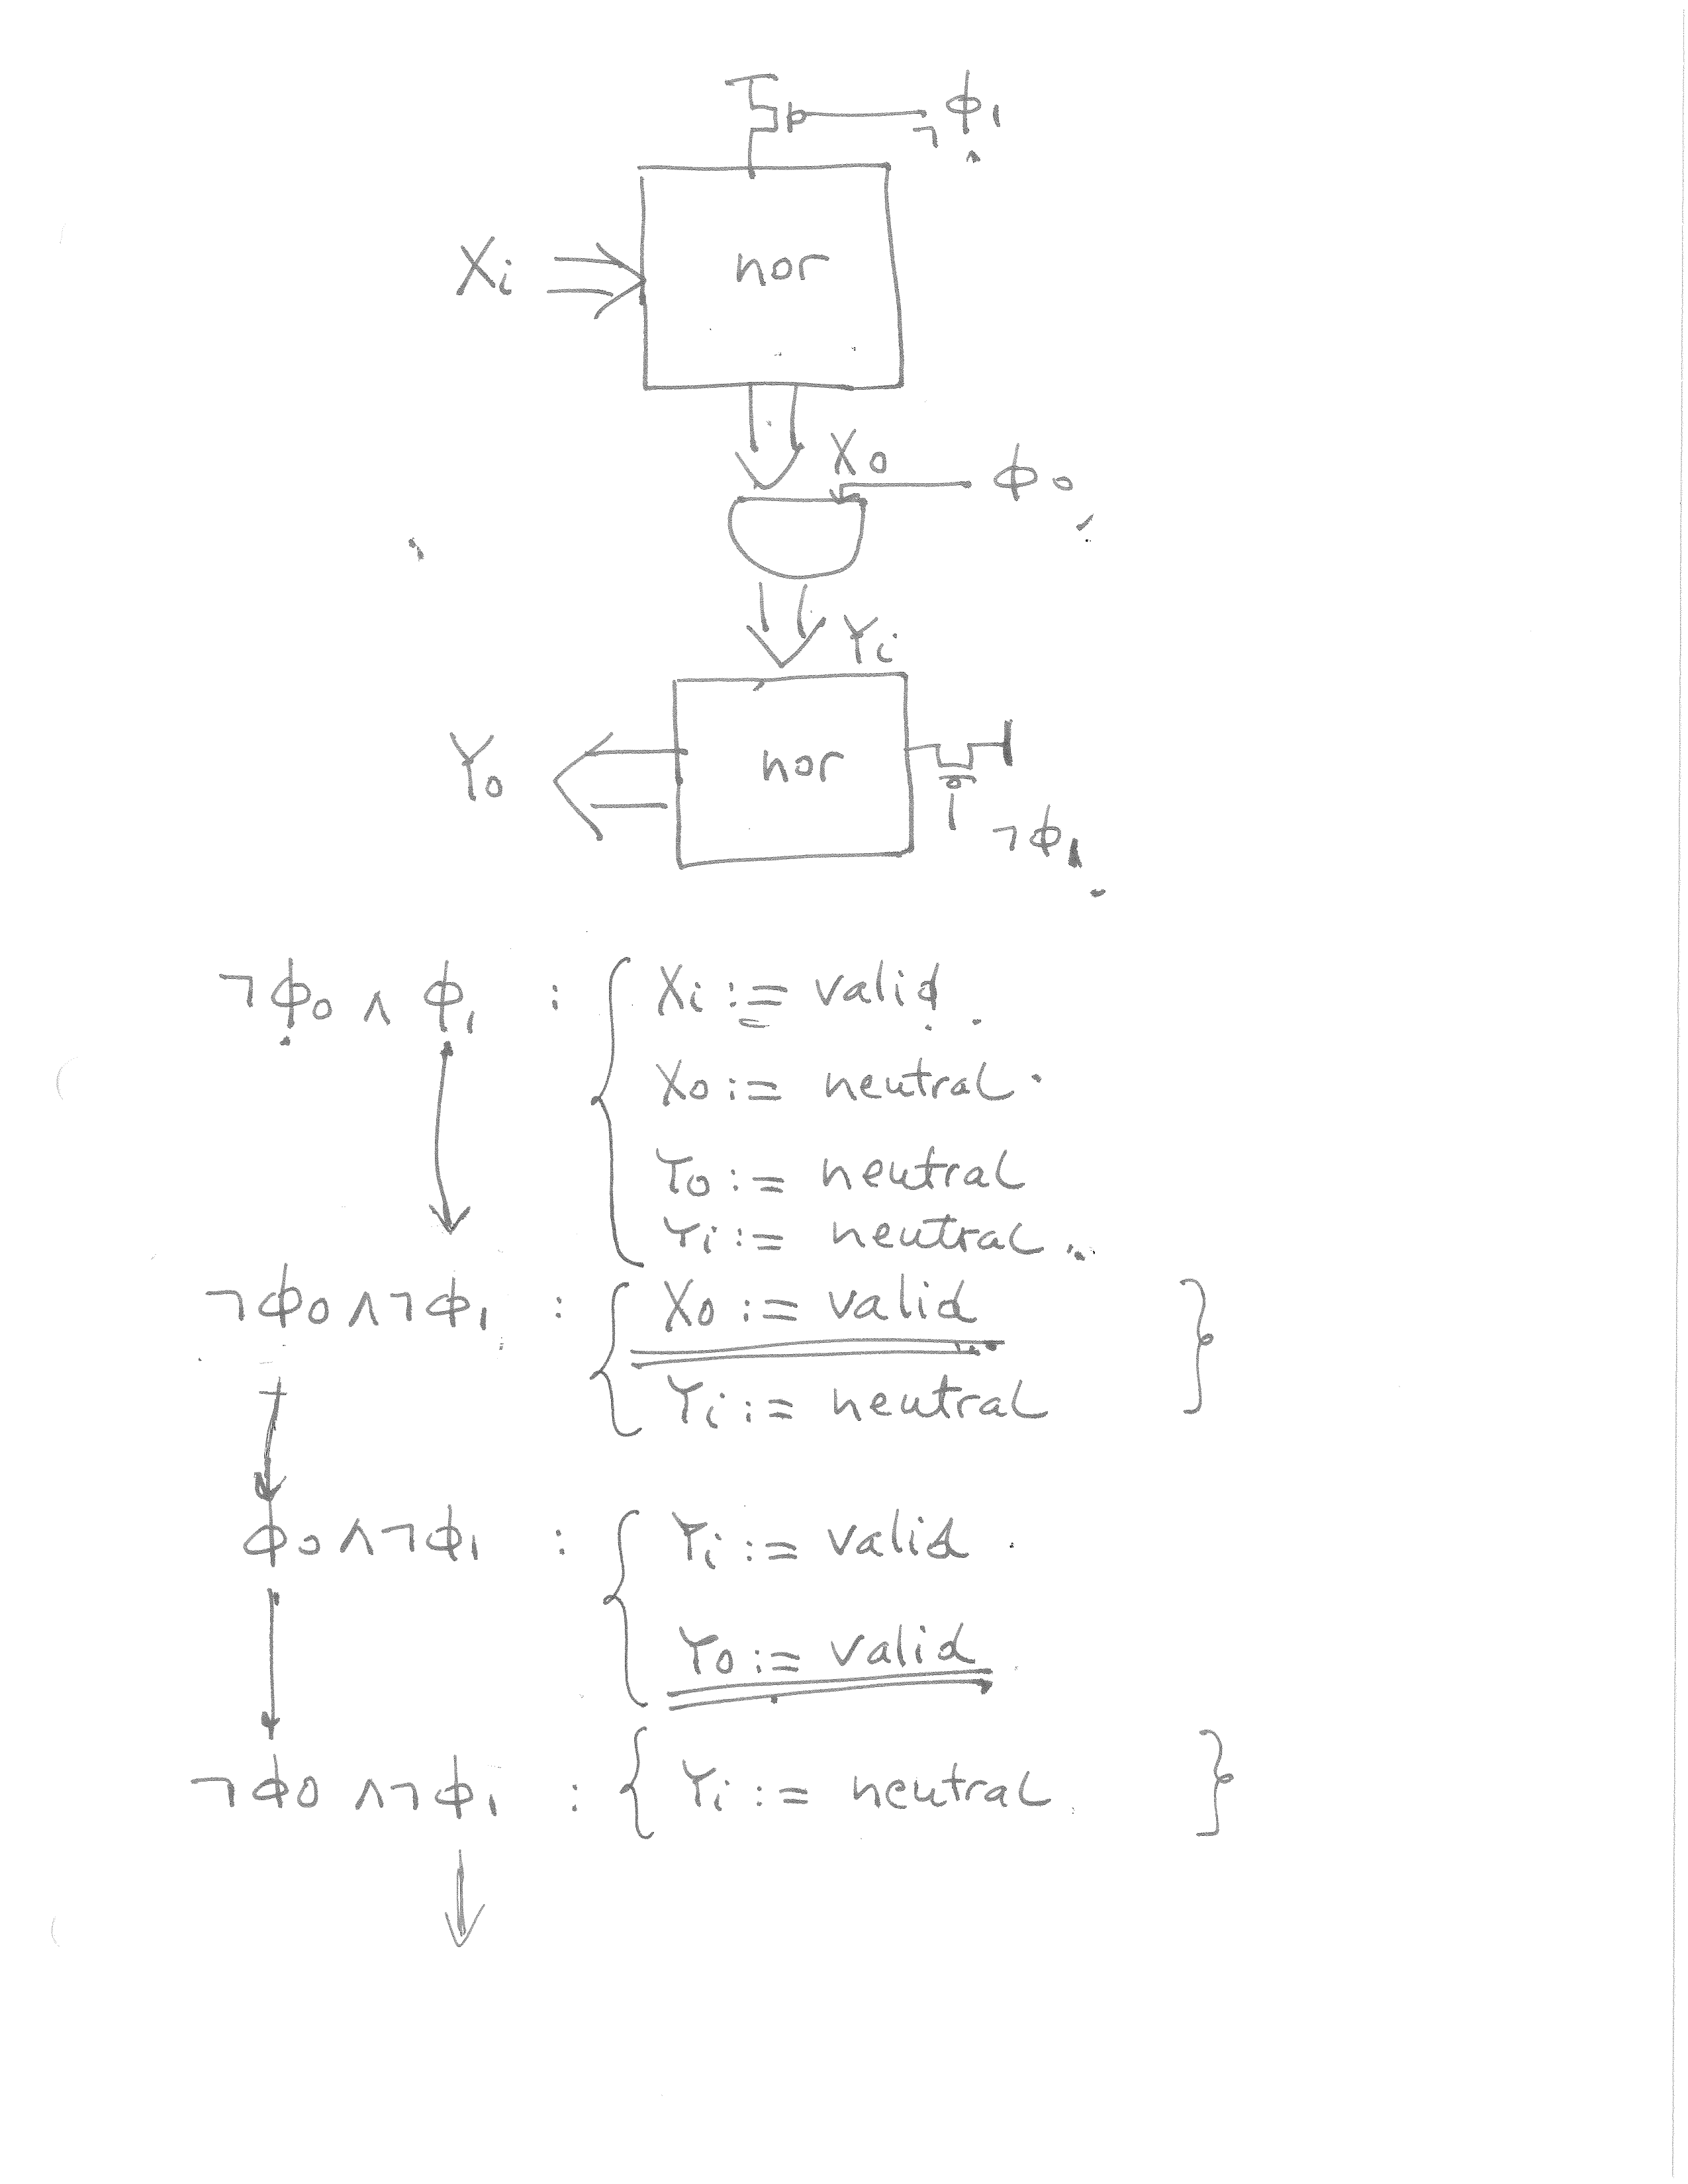 ¬ϕ₁
Xi
nor
Xo
ϕ₀
Yi
Yo
nor
¬ϕ₁
¬ϕ₀ ∧ ϕ₁ : { Xi := valid
Xo := neutral
Yo := neutral
Yi := neutral
¬ϕ₀ ∧ ¬ϕ₁ : { Xo := valid }
Yi := neutral
ϕ₀ ∧ ¬ϕ₁ : { Yi := valid
Yo := valid
¬ϕ₀ ∧ ¬ϕ₁ : { Yi := neutral }